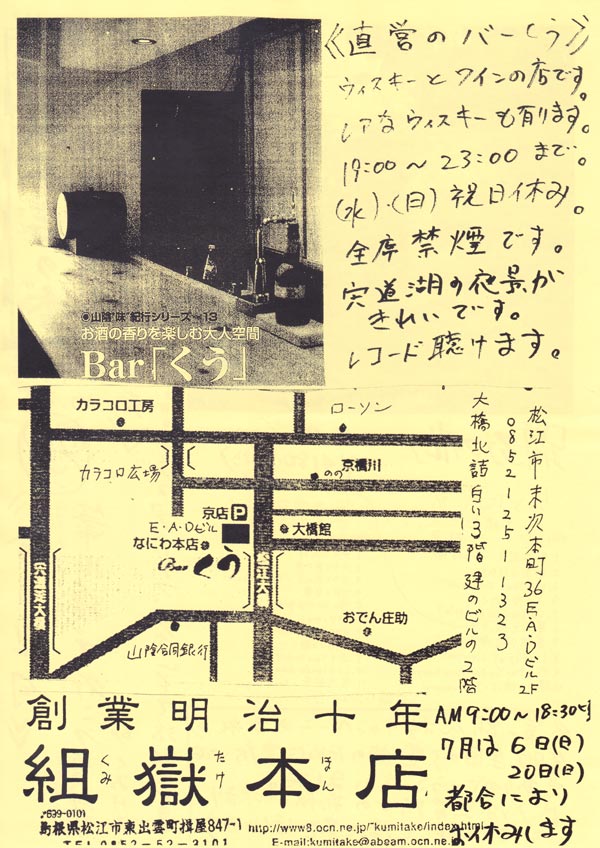 《直営のバーくう》
ウィスキーとワインの店です。
レアなウィスキーも有ります。
19:00～23:00まで。
(水)・(日)祝日休み。
全席禁煙です。
宍道湖の夜景が
きれいです。
レコード聴けます。
●山陰“味”紀行シリーズ～13
お酒の香りを楽しむ大人空間
Bar「くう」
カラコロ工房
ローソン
カラコロ広場
京橋川
のの
京店 P
E・A・Dビル
なにわ本店
大橋館
Bar くう
宍道湖大橋
松江大橋
おでん庄助
山陰合同銀行
松江市末次本町36 E・A・Dビル2F
0852-25-1323
大橋北詰白い3階建のビルの2階
創業明治十年
組嶽本店
くみ たけ ほん
〒699-0101
島根県松江市東出雲町揖屋847-1
TEL 0852-52-3101
http://www8.ocn.ne.jp/~kumitake/index.html
E-mail:kumitake@abeam.ocn.ne.jp
AM9:00～18:30
7月は6日(日)
20日(日)
都合により
お休みします